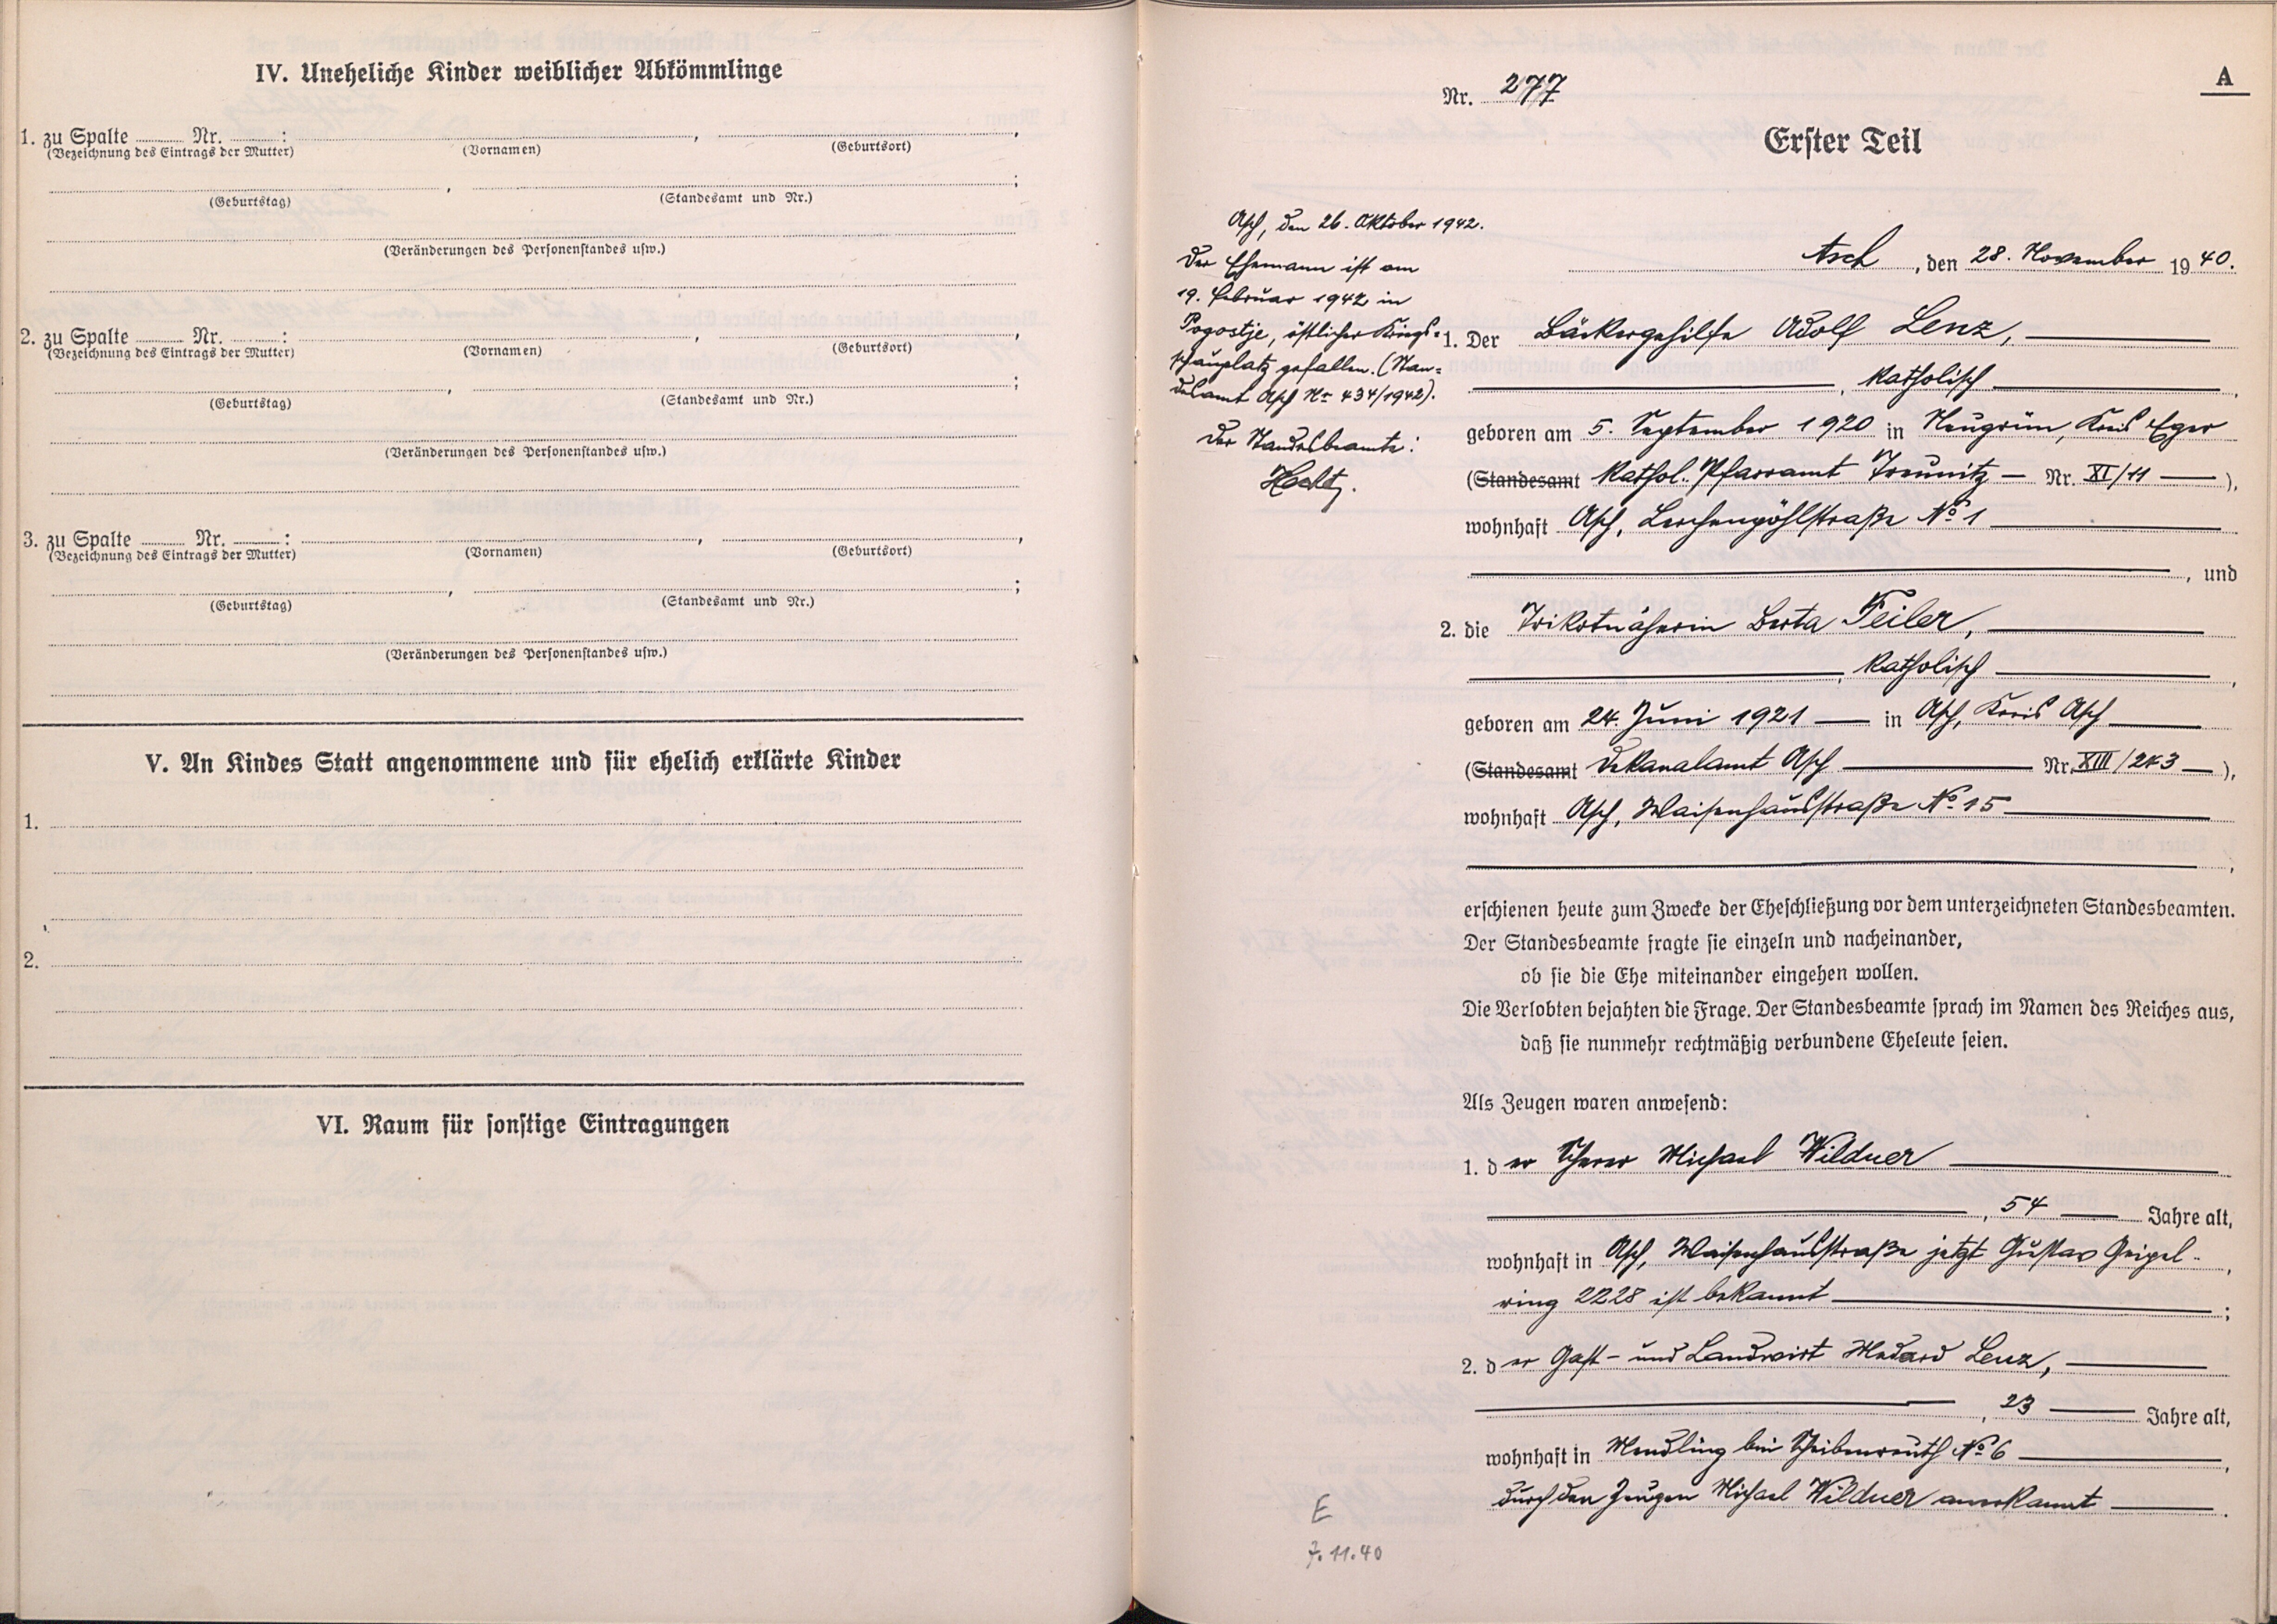 IV. Uneheliche Kinder weiblicher Abkömmlinge
1. zu Spalte ........ Nr. ........ : , ,
(Bezeichnung des Eintrags der Mutter) (Vornamen) (Geburtsort)
, ;
(Geburtstag) (Standesamt und Nr.)
(Veränderungen des Personenstandes usw.)
2. zu Spalte ........ Nr. ........ : , ,
(Bezeichnung des Eintrags der Mutter) (Vornamen) (Geburtsort)
, ;
(Geburtstag) (Standesamt und Nr.)
(Veränderungen des Personenstandes usw.)
3. zu Spalte ........ Nr. ........ : , ,
(Bezeichnung des Eintrags der Mutter) (Vornamen) (Geburtsort)
, ;
(Geburtstag) (Standesamt und Nr.)
(Veränderungen des Personenstandes usw.)
V. An Kindes Statt angenommene und für ehelich erklärte Kinder
1.
2.
VI. Raum für sonstige Eintragungen
A
Nr. 277
Erster Teil
Asch, den 26. Oktober 1942.
Der Ehemann ist am
19. Februar 1942 in
Pogostje, östlicher Kriegs-
schauplatz gefallen. (Stan-
desamt Asch Nr 434/1942).
Der Standesbeamte:
Asch, den 28. November 1940.
1. Der Bäckergehilfe Adolf Lenz,
, katholisch,
geboren am 5. September 1920 in Neugrün, Kreis Eger
(Standesamt Kathol. Pfarramt Treunitz — Nr. XI/11 —),
wohnhaft Asch, Lerchenpöhlstraße No 1
, und
2. die Trikotnäherin Berta Feiler,
, katholisch,
geboren am 24. Juni 1921 — in Asch, Kreis Asch
(Standesamt Dekanalamt Asch — Nr. XIII/243 —),
wohnhaft Asch, Waisenhausstraße No 15
,
erschienen heute zum Zwecke der Eheschließung vor dem unterzeichneten Standesbeamten.
Der Standesbeamte fragte sie einzeln und nacheinander,
ob sie die Ehe miteinander eingehen wollen.
Die Verlobten bejahten die Frage. Der Standesbeamte sprach im Namen des Reiches aus,
daß sie nunmehr rechtmäßig verbundene Eheleute seien.
Als Zeugen waren anwesend:
1. der Scherer Michael Wildner
, 54 — Jahre alt,
wohnhaft in Asch, Waisenhausstraße jetzt Gustav Geipel-,
ring 2228 ist bekannt ;
2. der Gast- und Landwirt Medard Lenz,
, 23 — Jahre alt,
wohnhaft in bei Scheibenreuth No 6 ,
durch den Zeugen Michael Wildner anerkannt .
E
7.11.40